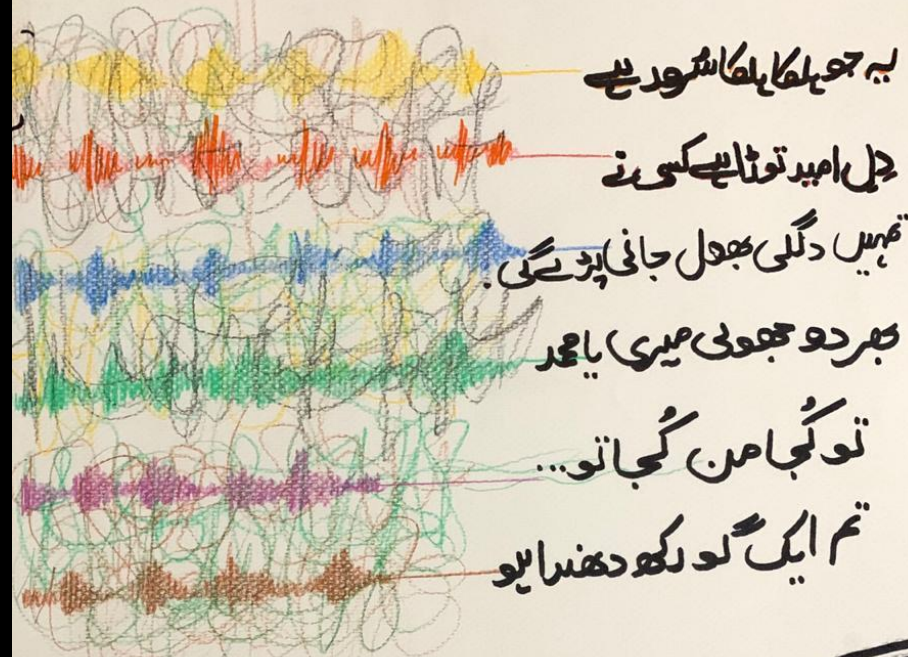 یہ جو ہلکا ہلکا سُرور ہے
دِل امید توڑا ہے کسی نے
تمہیں دلگی بھول جانی پڑے گی.
بھر دو جھولی میری یا محمد
تو کُجا من کُجا تو...
تم ایک گورکھ دھندا ہو